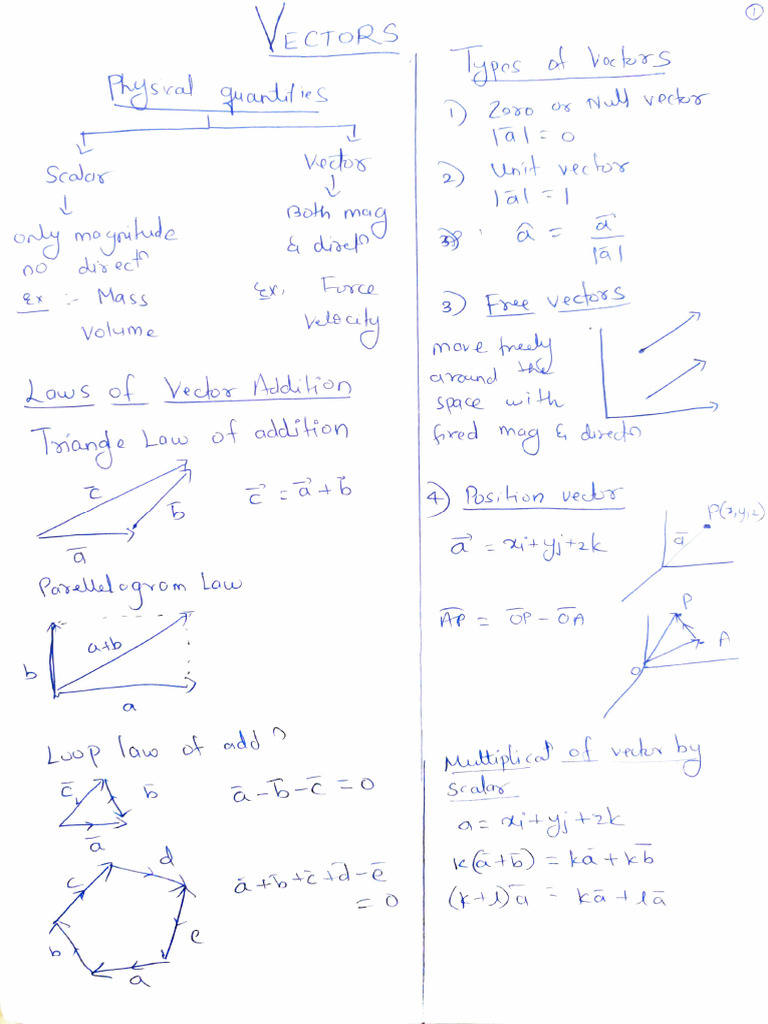 ①
VECTORS
Physical quantities
Scalar
only magnitude
no directⁿ
Ex :- Mass
Volume
Vector
Both mag
& directⁿ
Ex, Force
velocity
Laws of Vector Addition
Triangle Law of addition
c̄
b̄
ā
c⃗ = a⃗ + b̄
Parellelogram Law
b
a+b
a
Loop law of addⁿ
c̄
b̄
ā
ā - b̄ - c̄ = 0
c
d
b
e
a
ā + b̄ + c̄ + d̄ - ē
= 0
Types of Vectors
1) Zero or Null vector
|ā| = 0
2) Unit vector
|ā| = 1
â = a⃗ / |ā|
3) Free vectors
move freely
around the
space with
fixed mag & directⁿ
4) Position vector
a⃗ = xi + yj + zk
P(x,y,z)
ā
A̅P̅ = O̅P̅ - O̅A̅
P
A
O
Multiplicatⁿ of vector by
scalar
a = xi + yj + zk
k(ā + b̄) = kā + kb̄
(k+l)ā = kā + lā